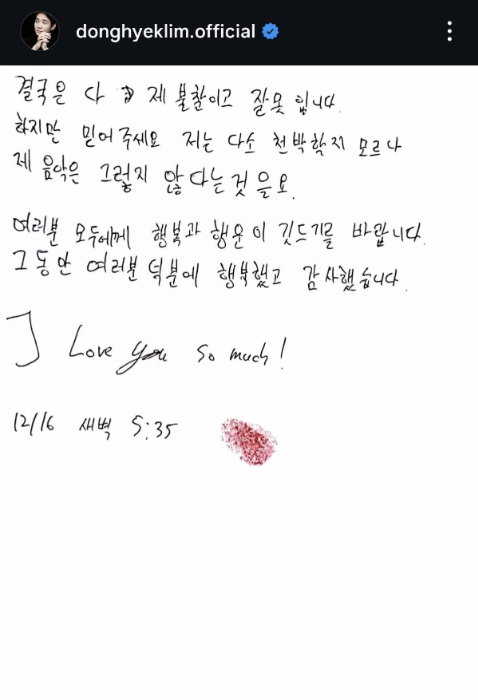 donghyeklim.official
결국은 다 제 불찰이고 잘못입니다.
하지만 믿어주세요 저는 다소 천박할지 모르나
제 음악은 그렇지 않다는 것을요.
여러분 모두에게 행복과 행운이 깃드기를 바랍니다.
그동안 여러분 덕분에 행복했고 감사했습니다.
I Love you so much!
12/16 새벽 5:35